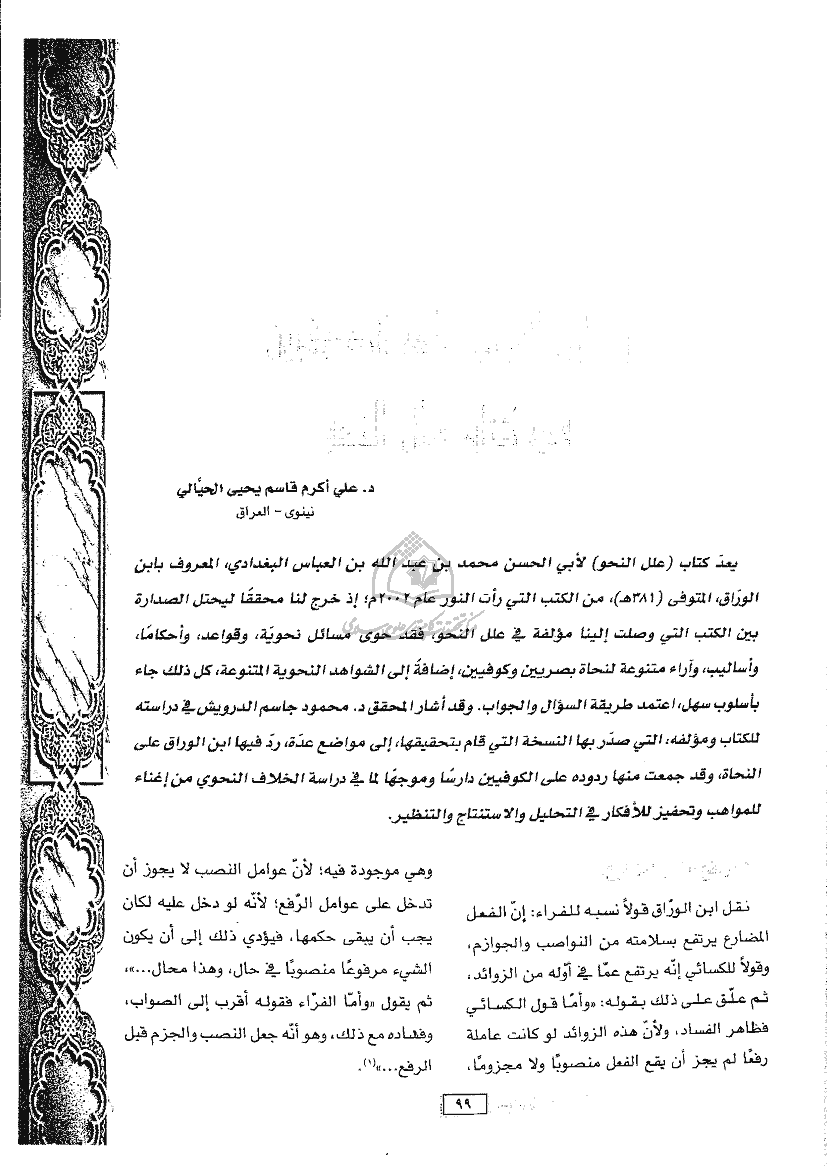 د. علي أكرم قاسم يحيى الحيّالي
نينوى - العراق
يعدّ كتاب (علل النحو) لأبي الحسن محمد بن عبد الله بن العباس البغدادي، المعروف بابن
الوراق، المتوفى (٣٨١هـ)، من الكتب التي رأت النور عام ٢٠٠٢م؛ إذ خرج لنا محققًا ليحتل الصدارة
بين الكتب التي وصلت إلينا مؤلفة في علل النحو، فقد حوى مسائل نحويّة، وقواعد، وأحكامًا،
وأساليب، وآراء متنوعة لنحاة بصريين وكوفيين، إضافةً إلى الشواهد النحوية المتنوعة، كل ذلك جاء
بأسلوب سهل، اعتمد طريقة السؤال والجواب. وقد أشار المحقق د. محمود جاسم الدرويش في دراسته
للكتاب ومؤلفه، التي صدّر بها النسخة التي قام بتحقيقها، إلى مواضع عدّة، ردّ فيها ابن الوراق على
النحاة، وقد جمعت منها ردوده على الكوفيين دارسًا وموجهًا لما في دراسة الخلاف النحوي من إغناء
للمواهب وتحفيز للأفكار في التحليل والاستنتاج والتنظير.
نقل ابن الورّاق قولاً نسبه للفراء: إنّ الفعل
المضارع يرتفع بسلامته من النواصب والجوازم،
وقولاً للكسائي إنّه يرتفع عمّا في أوّله من الزوائد،
ثم علّق على ذلك بقوله: «وأمّا قول الكسائي
فظاهر الفساد، ولأنّ هذه الزوائد لو كانت عاملة
رفعًا لم يجز أن يقع الفعل منصوبًا ولا مجزومًا،
وهي موجودة فيه؛ لأنّ عوامل النصب لا يجوز أن
تدخل على عوامل الرّفع؛ لأنّه لو دخل عليه لكان
يجب أن يبقى حكمها، فيؤدي ذلك إلى أن يكون
الشيء مرفوعًا منصوبًا في حال، وهذا محال...»،
ثم يقول «وأمّا الفرّاء فقوله أقرب إلى الصواب،
وفساده مع ذلك، وهو أنّه جعل النصب والجزم قبل
الرفع...»(١).
٩٩